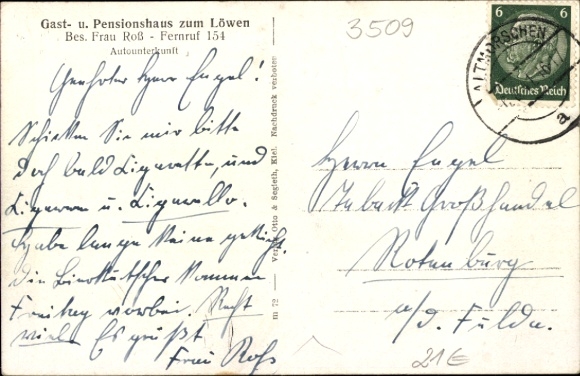 Gast- u. Pensionshaus zum Löwen
Bes. Frau Roß - Fernruf 154
Autounterkunft
Geehrter Herr Engel!
Schicken Sie mir bitte
doch bald Zigaretten, und
Zigarren u. Zigarillo.
Habe lange keine gekriegt.
Die Bierkutscher kommen
Freitag vorbei. Recht
viele Es grüßt
Frau Roß
m 72 — Verlag Otto & Segleth, Kiel. Nachdruck verboten
3509
6 6
Deutsches Reich
ALTMORSCHEN
a
Herrn Engel
Tabak Großhandel
Rotenburg
a/d. Fulda.
21€